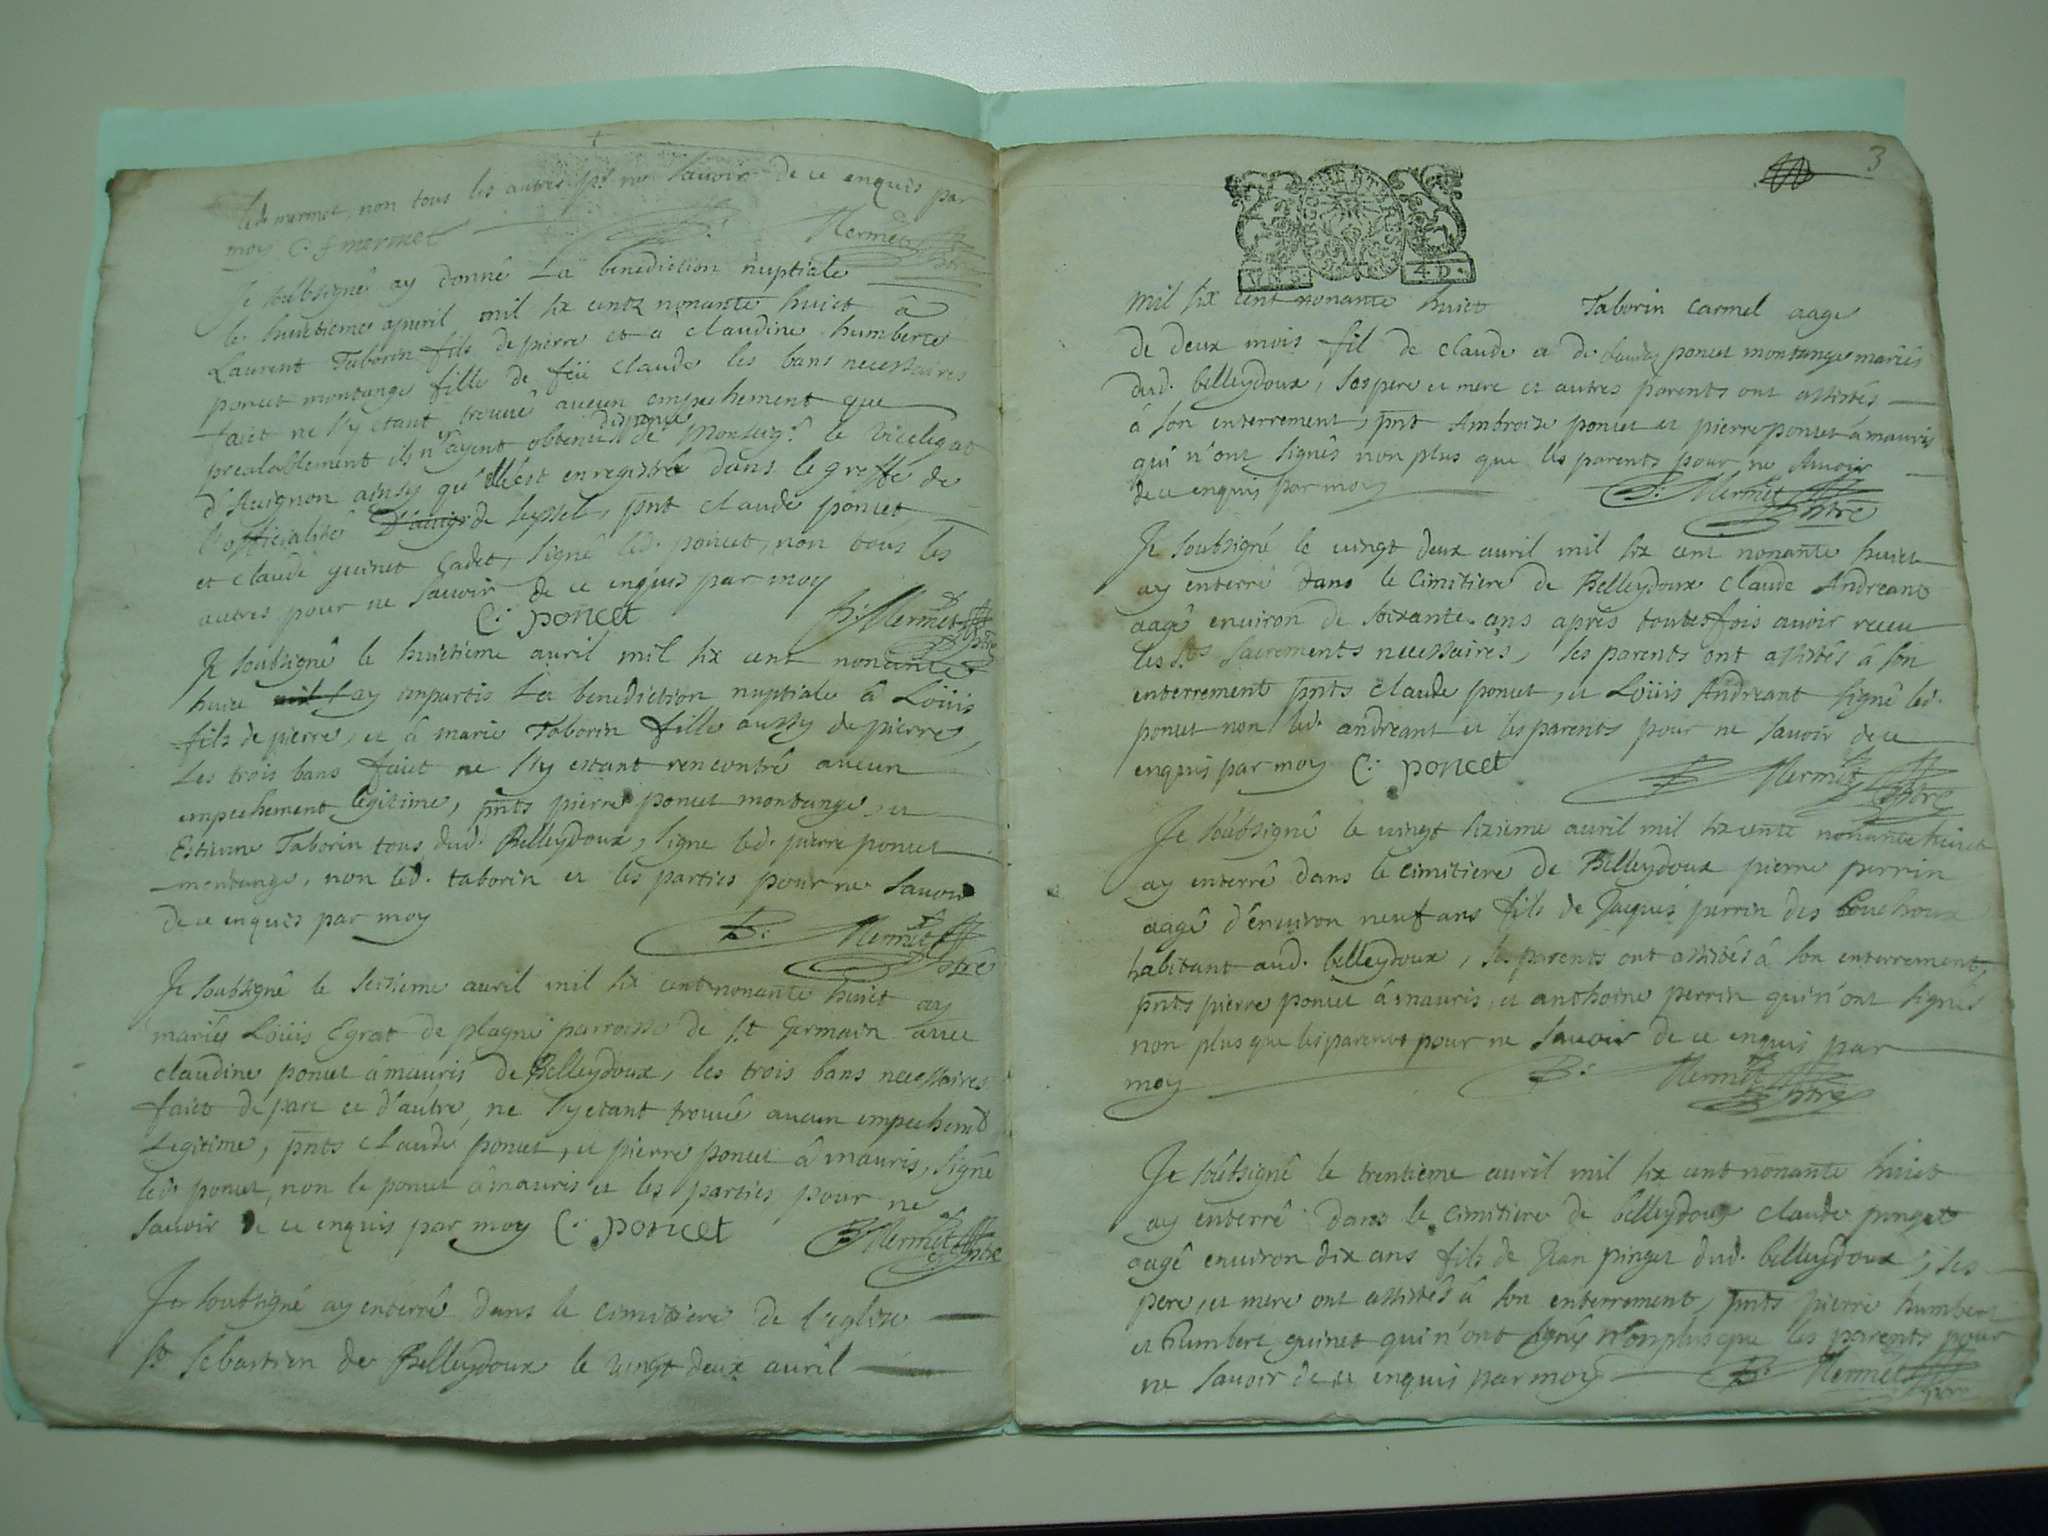 led. mermet, non tous les autres pr ne savoir de ce enquis par
moy C. f mermet Mermet ptre
Je soubsigné ay donné La benediction nuptiale
le huictieme apvril mil six centz nonante huict â
Laurent Taborin fils de pierre et a claudine humberte
poncet montange fille de feü claude les bans necessaires
faict ne s'y etant trouvé aucun empechement que
prealablement ils n'ayent obtenus dispence de Monseigr. le Vicelegat
d'Avignon ainsy qu'elle est enregistrée dans le greffe de
l'officialité de seyssel, pnt claude poncet
et claude guinet Cadet, signé led. poncet, non tous les
autres pour ne savoir de ce enquis par moy
C: poncet B: Mermet ptre
Je soubsigné le huictieme avril mil six cent nonante
huict ay impartis La benediction nuptiale â Loüis
fils de pierre, et â marie Taborin fille aussy de pierre,
Les trois bans faict ne s'y estant rencontré aucun
empechement legitime, pnts pierre poncet montange, et
Estienne Taborin tous dud. Belleydoux, signe led. pierre poncet
montange, non led. taborin et les parties pour ne savoir
de ce enquis par moy B: Mermet ptre
Je soubsigné le seizieme avril mil six cent nonante huict ay
mariés Loüis Egrat de plagne parroisse de St Germain avec
claudine poncet âmauris de Belleydoux, les trois bans necessaires
faict de part et d'autre, ne s'y etant trouvé aucun empechemt
Legitime, pnts claude poncet, et pierre poncet âmauris, signé
led. poncet, non le poncet âmauris et les parties pour ne
savoir de ce enquis par moy C: poncet B Mermet ptre
Je soubsigné ay enterré dans le cimitiere de l'eglise
St sebastien de Belleydoux le vingt deux avril
3
mil six cent nonante huict Taborin carmel aage
de deux mois fil de claude et de poncet montange mariés
dud. belleydoux, ses pere et mere et autres parents ont assistés
â son enterrement, pnt Ambroize poncet et pierre poncet âmauris
qui n'ont signés non plus que les parents pour ne savoir
de ce enquis par moy B: Mermet ptre
Je soubsigné le vingt deux avril mil six cent nonante huict
ay enterré dans le cimitiere de Belleydoux claude Andreant
aagé environ de soixante ans apres toutesfois avoir receu
les Sts sacrements necessaires, ses parents ont assistés â son
enterrement pnts claude poncet, et Loüis Andreant signé led.
poncet non led. andreant et les parents pour ne savoir de ce
enquis par moy C: poncet B Mermet ptre
Je soubsigné le vingt sixieme avril mil six cent nonante huict
ay enterré dans le cimitiere de Belleydoux pierre perrin
aagé d'environ neuf ans fils de Jaques perrin des Bouchoux
habitant aud. belleydoux, ses parents ont assistés â son enterrement,
pnts pierre poncet âmauris, et anthoine perrin qui n'ont signés
non plus que les parents pour ne savoir de ce enquis par
moy B: Mermet ptre
Je soubsigné le trentieme avril mil six cent nonante huict
ay enterré dans le cimitiere de belleydoux claude pinget
aagé environ dix ans fils de Jean pinget dud. belleydoux, ses
pere, et mere ont assistés â son enterrement, pnts pierre humbert
et humbert guinet qui n'ont signés non plus que les parents pour
ne savoir de ce enquis par moy B: Mermet ptre